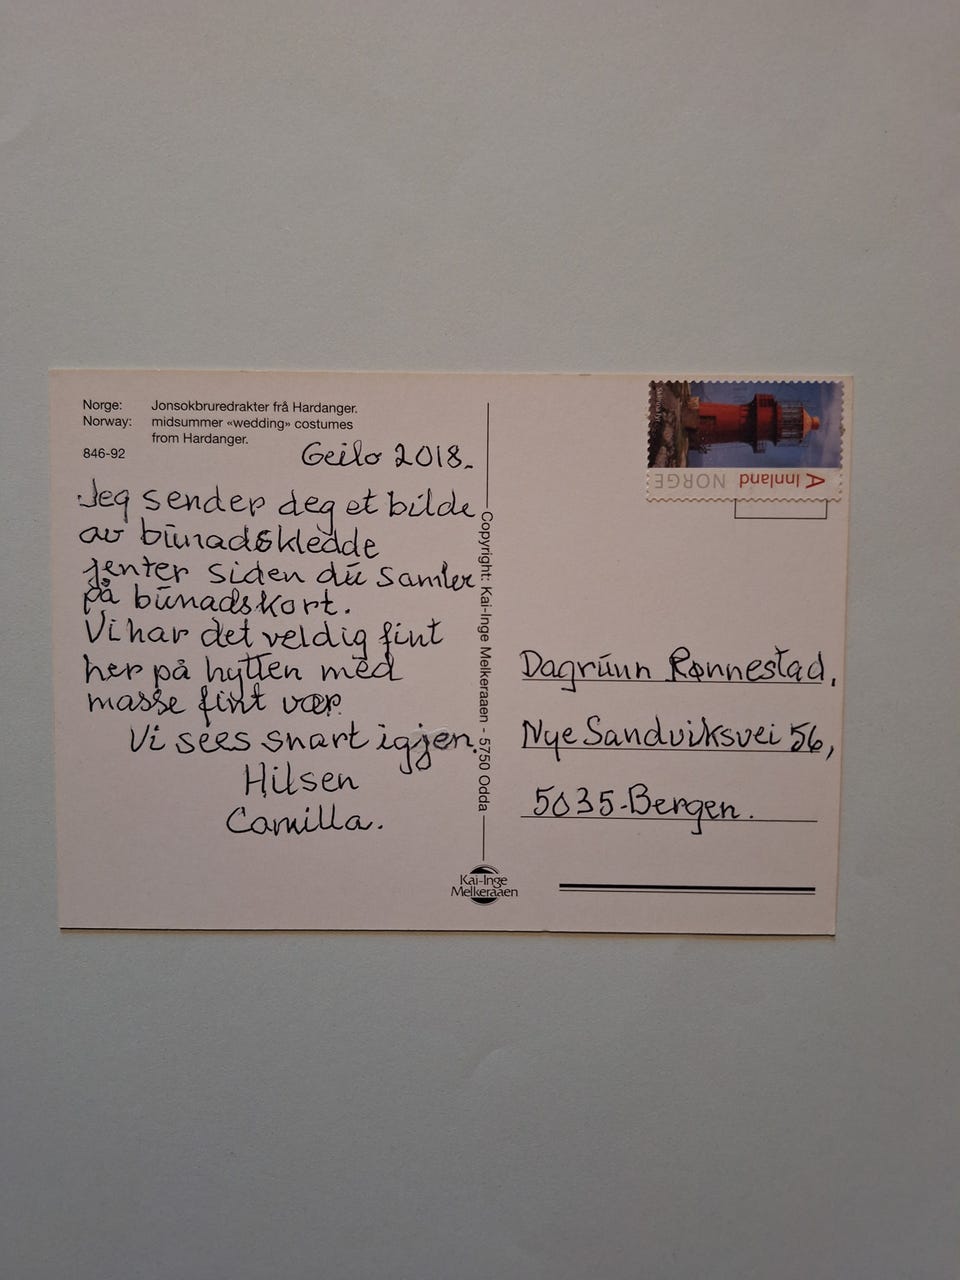 Norge: Jonsokbruredrakter frå Hardanger.
Norway: midsummer «wedding» costumes
from Hardanger.
846-92
Geilo 2018.
Jeg sender deg et bilde
av bunadskledde
jenter siden du samler
på bunadskort.
Vi har det veldig fint
her på hytten med
masse fint vær.
Vi sees snart igjen.
Hilsen
Camilla.
Copyright: Kai-Inge Melkeraaen - 5750 Odda
Kai-Inge
Melkeraaen
A Innland
NORGE
Dagrunn Rønnestad,
Nye Sandviksvei 56,
5035-Bergen.